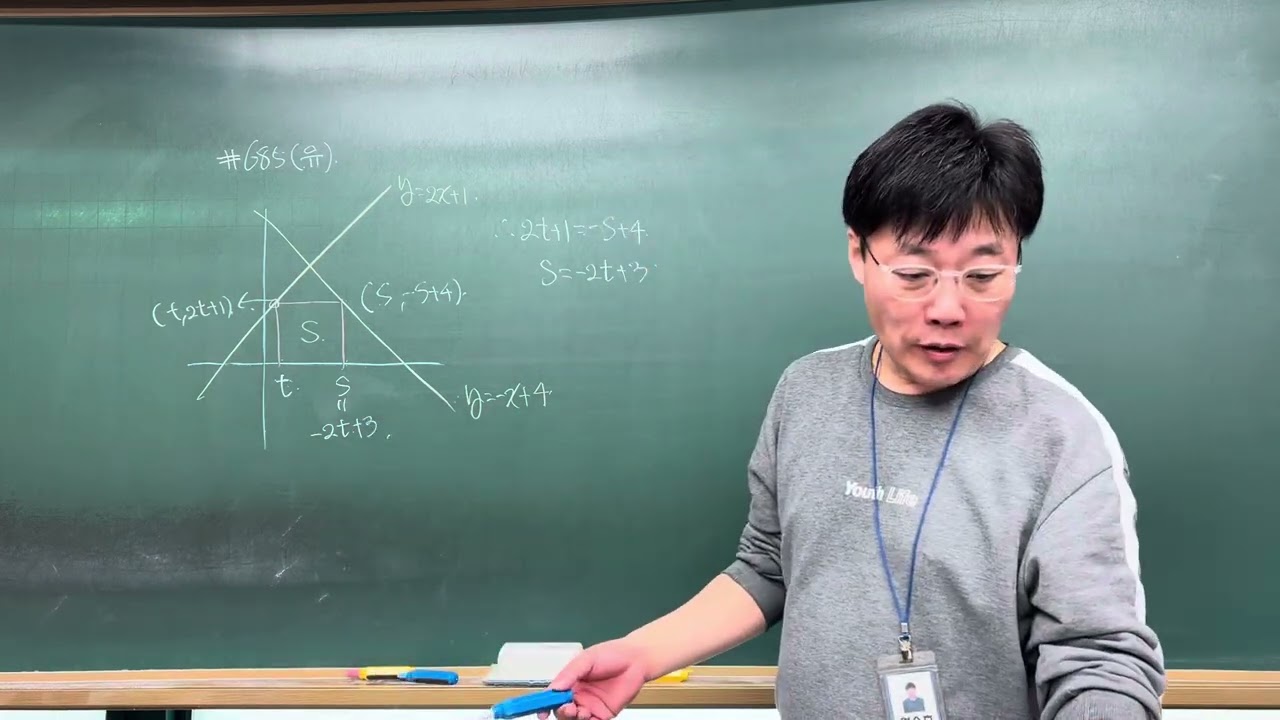 #685(유)
y=2x+1.
∴2t+1=-s+4.
s=-2t+3.
(t,2t+1)
(s,-s+4).
S.
t.
s
=
-2t+3.
y=-x+4.
Youth Life